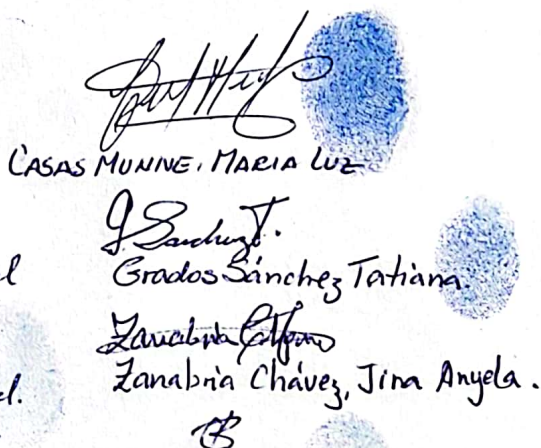 CASAS MUNIVE, MARIA LUZ
G. Sánchez T.
l
Grados Sánchez Tatiana.
Zanabria
Zanabria Chávez, Jina Anyela.
l.